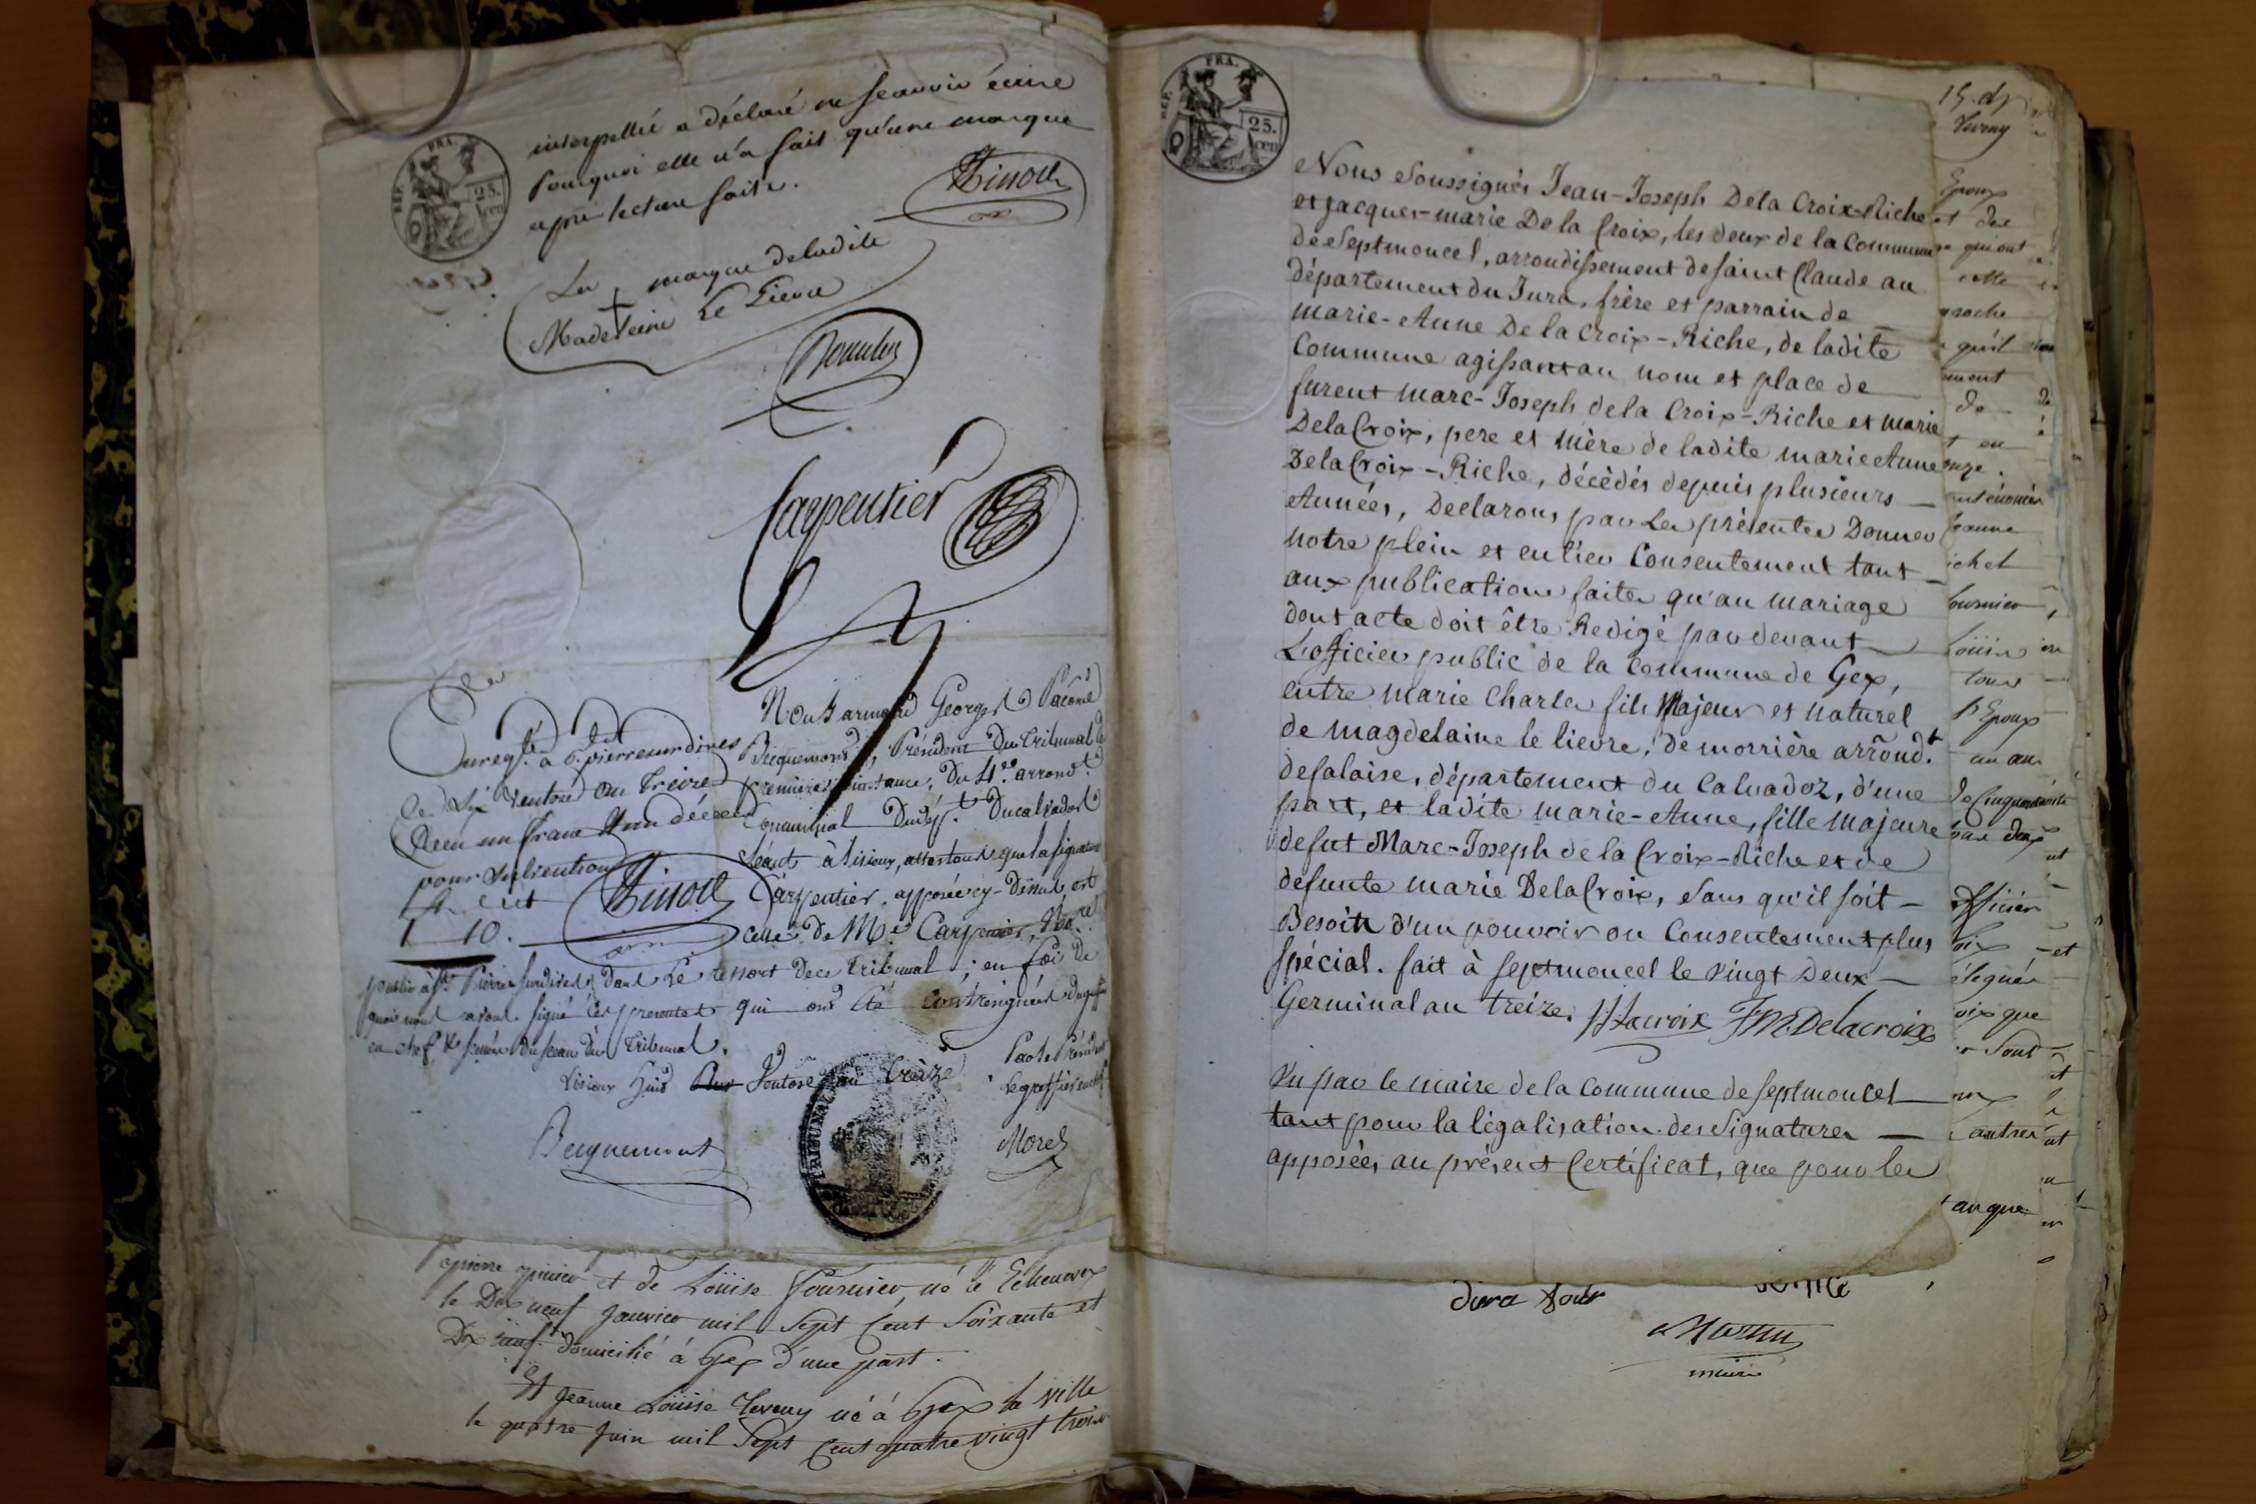 FRA.
REP.
25.
cen
interpellée a déclaré ne scavoir écrire
pourquoi elle n'a fait qu'une marque
après lecture faite.
La marque deladite
Madeleine Le Lievre
Carpentier
Nous armand Georges Pacome
Becquemont, Président Du Tribunal de
premiere instance, Du 4.e arrond.t
Communal Dudép.t Ducalvados
séant à Lisieux, attestons que la signature
Carpentier, apposée cy-Dessus est
celle De Me Carpentier, No.re
Enreg.é à St. pierre surdives
le Six Ventose an Treize
Reçu un franc
1 10.
public à St. Pierre surdives, dans le ressort dece tribunal; en foi de
quoi nous avons signé les presentes qui ont été contresignées
en chef, & scellées du sceau du Tribunal.
Lisieux huit Ventose an treize
TRIBUNAL
Becquemont
Morel
et de Loüise fournier, né à Echenevex
le Dix neuf janvier mil sept cent soixante et
Dix neuf domicilié à Gex d'une part.
Et Jeanne Loüise né à Gex la ville
le quatre juin mil sept cent quatre vingt trois
FRA.
REP.
25.
cen
Nous soussignés Jean-Joseph De la Croix-Riche
et jacques-marie De la Croix, les deux de la Commune
de Septmoncel, arrondissement de saint Claude au
département du Jura, frère et parrain de
marie-Anne De la Croix-Riche, de ladite
Commune agissant au nom et place de
furent marc-Joseph de la Croix-Riche et marie
De la Croix, pere et mère de ladite marie Anne
De la Croix-Riche, décèdés depuis plusieurs
Années, Declarons par les présentes Donner
notre plein et entier Consentement tant
aux publications faites qu'au mariage
dont acte doit être Redigé par devant
L'officier public de la Commune de Gex,
entre marie Charles fils Majeur et naturel
de magdelaine le lievre, de morrière arrond.t
de falaise, département du Calvadoz, d'une
part, et ladite marie-Anne, fille majeure
de fut Marc-Joseph de la Croix-Riche et de
defunte marie De la Croix, sans qu'il soit
Besoin d'un pouvoir ou Consentement plus
spécial. fait à septmoncel le vingt Deux
Germinal an treize. JJLacroix JM.Delacroix
Vu par le maire de la Commune de septmoncel
tant pour la légalisation des signatures
apposées, au présent Certificat, que pour les
maire
15.
Epoux
cette
qu'il
de
Jeanne
fournier
Loüise
tous
Epoux
un an
officier
et
que
sont
autres